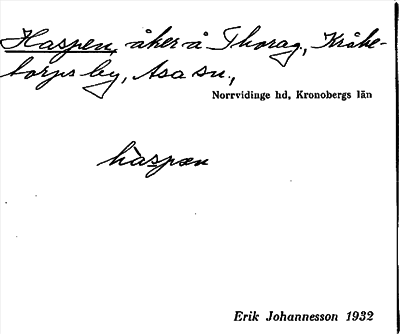 Haspen, åker å Thorag, Kråke-
torps by, Asa sn.,
Norrvidinge hd, Kronobergs län
hàspæn
Erik Johannesson 1932